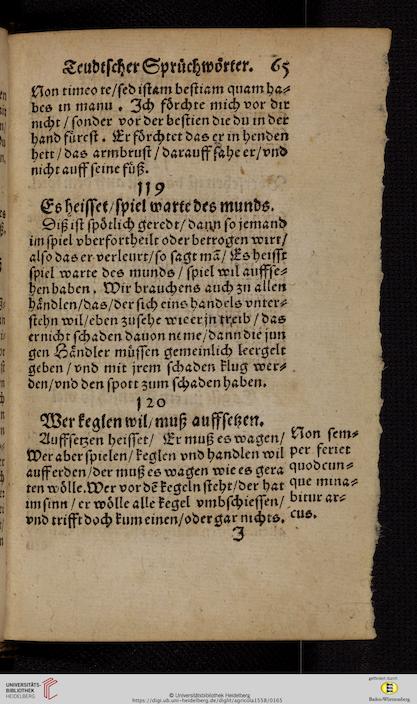 Teudtscher Sprüchwörter. 65
Non timeo te/sed istam bestiam quam ha-
bes in manu. Ich förchte mich vor dir
nicht/sonder vor der bestien die du in der
hand fürest. Er förchtet das er in henden
hett/das armbrust/darauff sahe er/vnd
nicht auff seine füß.
119
Es heisset/spiel warte des munds.
Diß ist spötlich geredt/dann so jemand
im spiel vberfortheilt oder betrogen wirt/
also das er verleurt/so sagt mā/Es heisst
spiel warte des munds/spiel wil auffse-
hen haben. Wir brauchens auch zu allen
händlen/das/der sich eins handels vnter-
stehn wil/eben zusehe wie er jn treib/das
er nicht schaden dauon neme/dann die jun
gen Händler müssen gemeinlich leergelt
geben/vnd mit jrem schaden klug wer-
den/vnd den spott zum schaden haben.
120
Wer keglen wil/muß auffsetzen.
Auffsetzen heisset/ Er muß es wagen/
Wer aber spielen/keglen vnd handlen wil
auff erden/der muß es wagen wie es gera
ten wölle. Wer vor dē kegeln steht/der hat
im sinn/er wölle alle kegel vmbschiessen/
vnd trifft doch kum einen/oder gar nichts.
Non sem-
per feriet
quodcun-
que mina-
bitur ar-
cus.
J
UNIVERSITÄTS-
BIBLIOTHEK
HEIDELBERG
© Universitätsbibliothek Heidelberg
https://digi.ub.uni-heidelberg.de/diglit/agricola1558/0165
gefördert durch
Baden-Württemberg